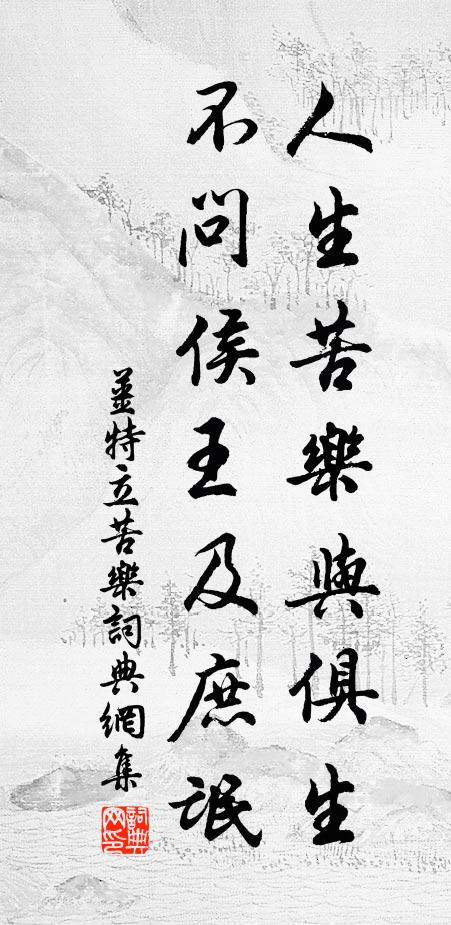 人生苦樂與俱生
不問侯王及庶氓
姜特立苦樂詞典網集
詞典
网印